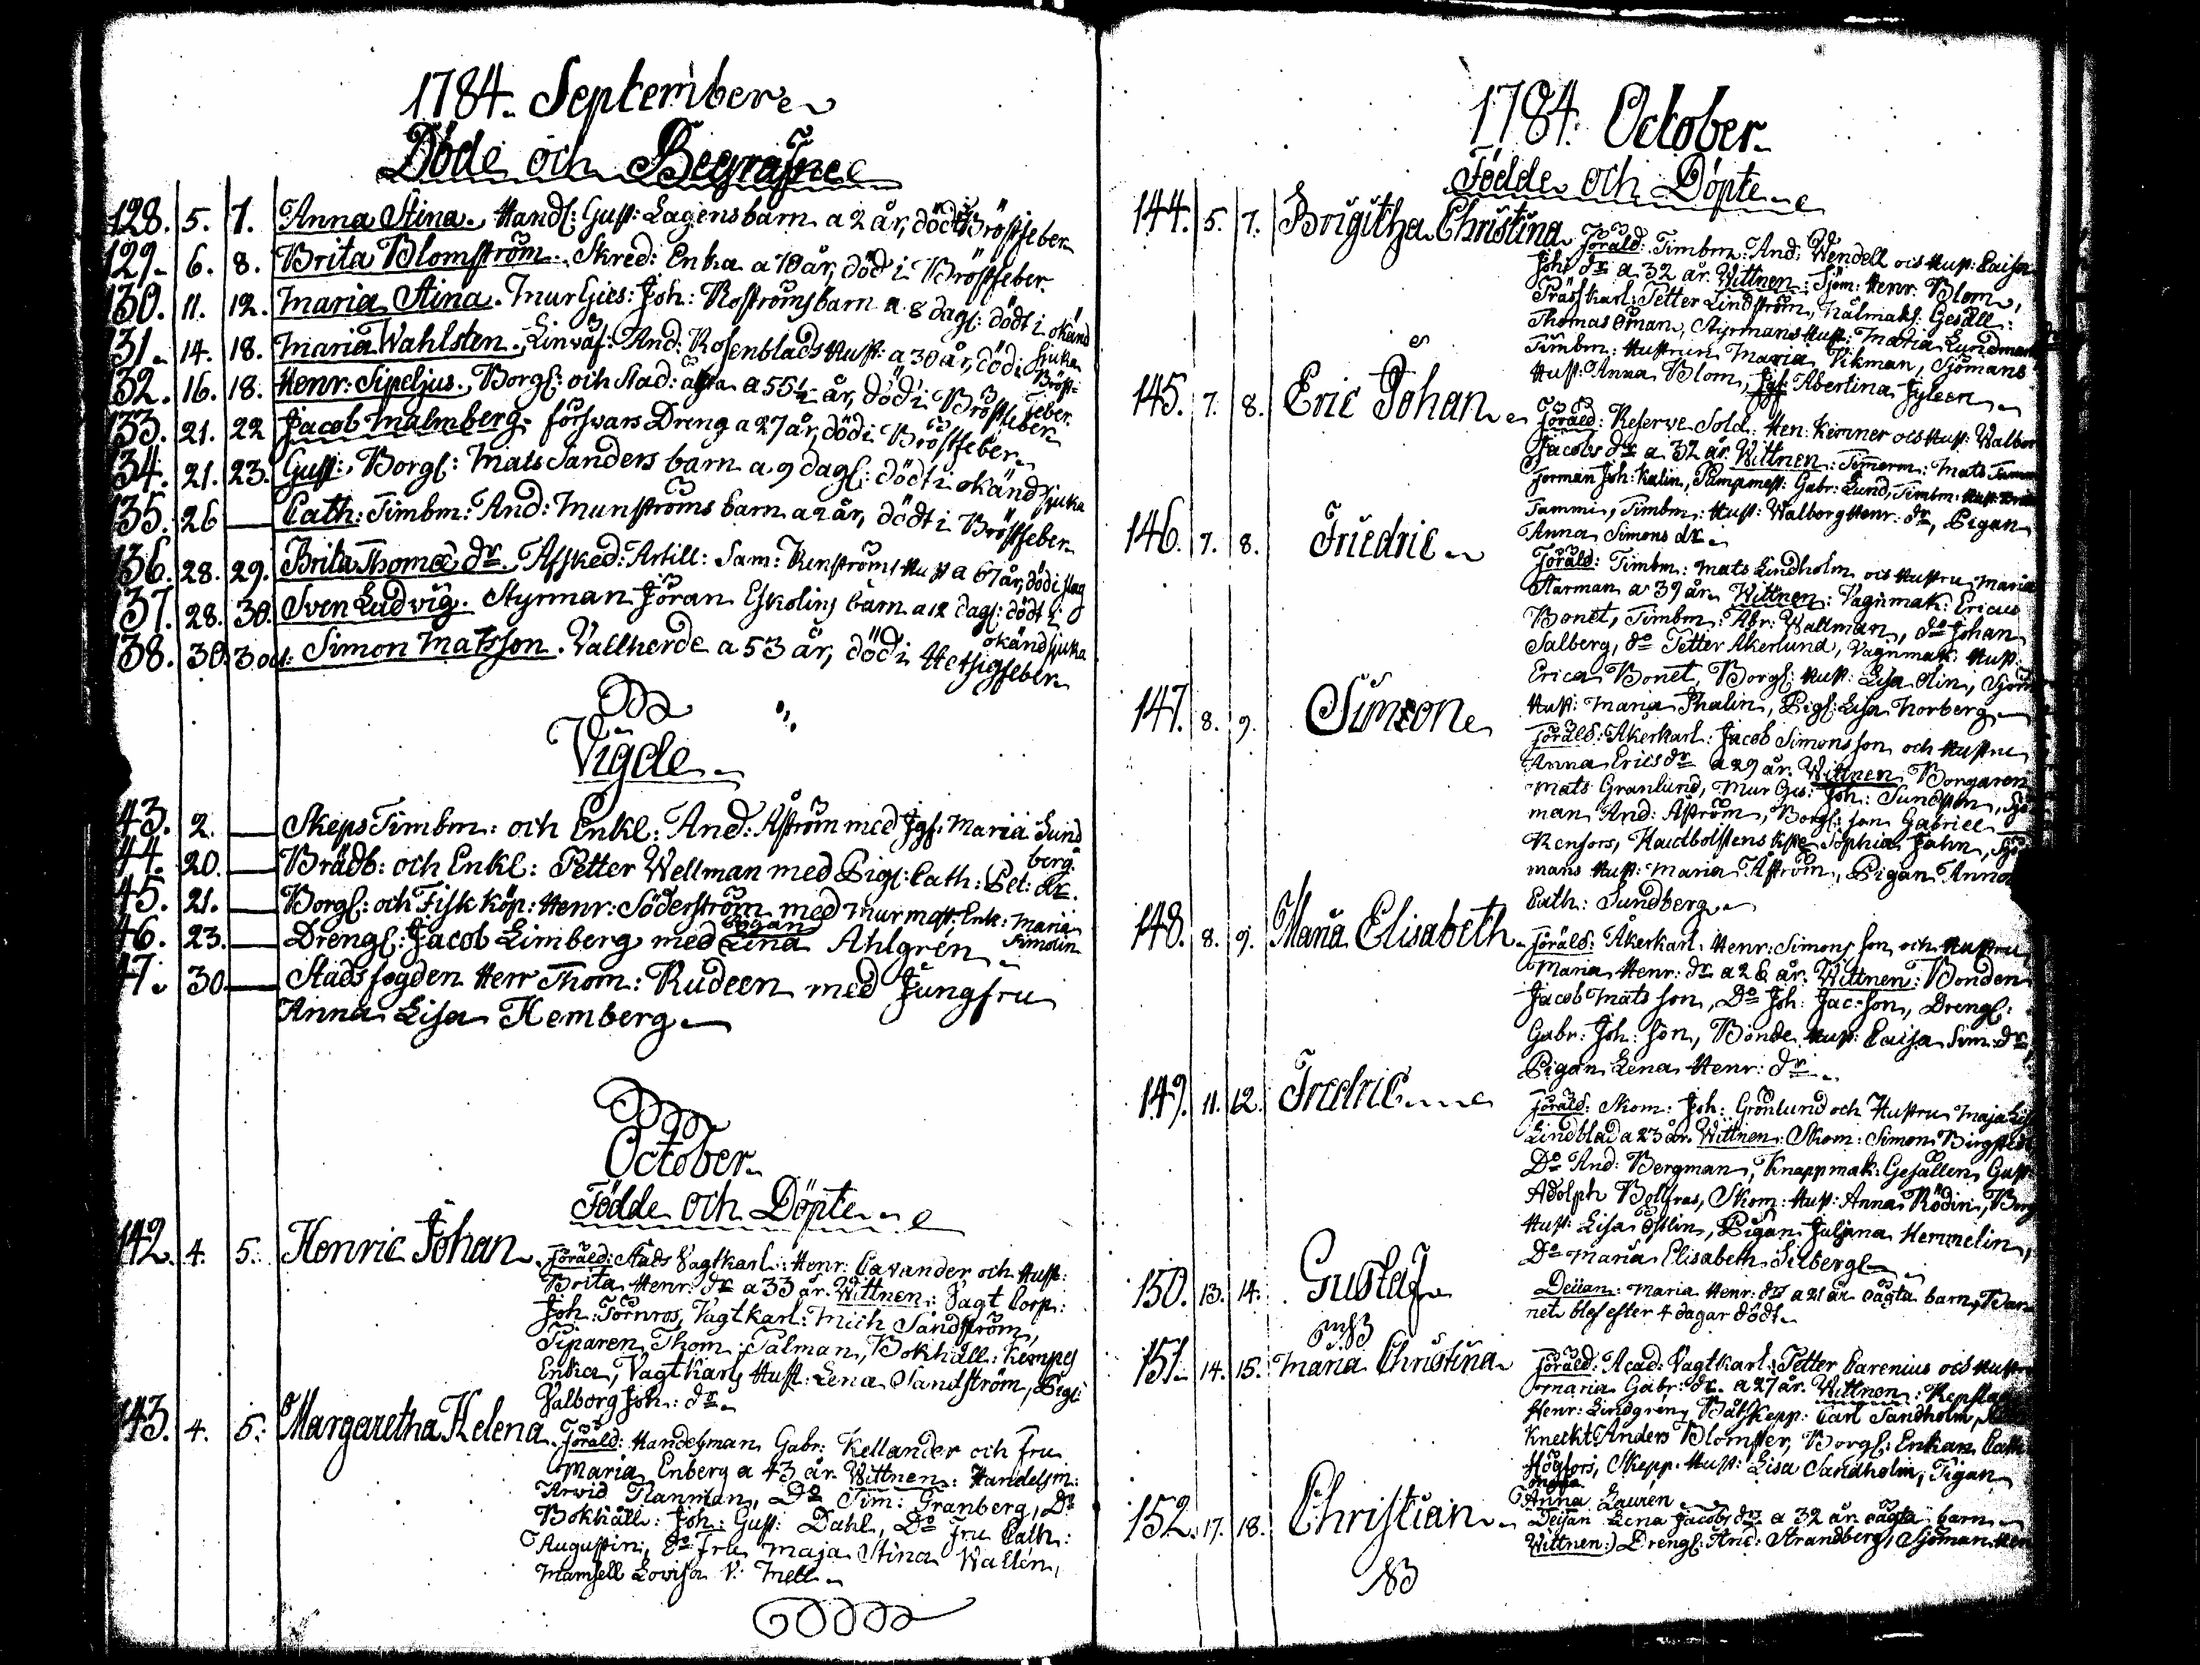 1784. September
Döde och Begrafne
128. 5. 7. Anna Stina. Handl: Gust: Lagens barn a 2 år, dödt Bröstfeber
129. 6. 8. Brita Blomström. Skred: Enka a 70 år, död i Bröstfeber
130. 11. 12. Maria Stina. Mur Gies: Joh: Rostroms barn a 8 dag: dödt i okänd
sjuka
131. 14. 18. Maria Wahlsten. Linwäf: And: Rosenblads Hust: a 30 år, död i Bröst:
feber
132. 16. 18. Henr: Sipeljus. Borg: och Stad: a 55½ år, död i Bröstfeber
133. 21. 22 Jacob Malmberg. försvars Dreng a 27 år, död i Bröstfeber
134. 21. 23. Gust: Borg: Mats Sanders barn a 9 dag: dödt i okänd sjuka
135. 26 — Cath: Timbm: And: Munströms barn a 2 år, dödt i Bröstfeber
136. 28. 29. Brita Thomæ dr. Afsked: Artill: Sam: Renströms Hust a 67 år, död i slag
137. 28. 30. Sven Ludvig. Styrman Jöran Eskolins barn a 12 dag: dödt i
okänd sjuka
138. 30. 3 oct: Simon Matsson. Vallherde a 53 år, död i Hetsigfeber
Vigde
43. 2. — Skeps Timbm: och Enkl: And: Åström med Jgf: Maria Sund
berg
44. 20. — Brädb: och Enkl: Petter Wellman med Pig: Cath: Pet: dr.
45. 21. — Borg: och Fisk köp: Henr: Söderström med Murmäst: Enk: Maria
Simolin
46. 23. — Dreng: Jacob Limberg med Pigan Lena Ahlgren
47. 30 — Stads fogden Herr Thom: Rudeen med Jungfru
Anna Lisa Hemberg
October
Födde och Döpte
142. 4. 5. Henric Johan. Föräld: Stads Vagtkarl: Henr: Cavander och Hust:
Brita Henr: dr a 33 år. Wittnen: Vagt Corp:
Joh: Törnros, Vagtkarl: Mich Sandström,
Siparen Thom: Salman, Bokhåll: Kempes
Enka, Vagtkarls Hust: Lena Sandström, Pig:
Valborg Joh: dr
143. 4. 5. Margaretha Helena. Föräld: Handelsman Gabr: Kellander och Fru
Maria Enberg a 43 år. Wittnen: Handelsm:
Arvid Planman, Do Sim: Granberg, Do
Bokhåll: Joh: Gust: Dahl, Do Fru Cath:
Augustin, do Fru Maja Stina Wallen,
Mamsell Lovisa V: Mell
1784. October
Födde och Döpte
144. 5. 7. Brigitha Christina Föräld: Timbm: And: Wendell och Hust: Caisa
Johs dr a 32 år. Wittnen: Sjöm: Henr. Blom,
Petter Lindström, Nålmak: Gesäll:
Thomas Öman, Styrmans Hust: Maria Lundmark
Timbm: Hustrun Maria Vikman, Sjömans
Hust: Anna Blom, Jgf: Abertina Jyleen
145. 7. 8. Eric Johan Föräld: Reserve Sold: Hen: Kemner och Hust: Walbor
Jacobs dr a 32 år. Wittnen: Timerm: Mats
Forman Joh: Kalin, Pumpmest: Gabr: Lund, Timbm: Hust:
Tammi, Timbm: Hust: Walborg Henr: dr, Pigan
Anna Simons dr
146. 7. 8. Friedric Föräld: Timbm: Mats Lindholm och Hustru Maria
Starman a 39 år. Wittnen: Vagnmak: Ericus
Bonet, Timbm: Abr: Wallman, do Johan
Salberg, do Petter Åkerlund, Vagnmak: Hust:
Erica Bonet, Borg: Hust: Lisa Olin, Sjöm
Hust: Maria Thalin, Pig: Lisa Norberg
147. 8. 9. Simeon Föräld: Åkerkarl: Jacob Simons son och Hustru
Anna Erics dr a 29 år. Wittnen Borgaren
Mats Granlund, Mur Ges: Joh: Sundsten, Sjö
man And: Åström, Borg: son Gabriel
Renfors, Sophia Jahn, Sjö
mans Hust: Maria Åström, Pigan Anna
Cath: Sundberg
148. 8. 9. Maria Elisabeth Föräld: Åkerkarl: Henr: Simons son och Hustru
Maria Henr: dr a 26 år. Wittnen: Bonden
Jacob Mats son, Do Joh: Jac: son, Dreng:
Gabr: Joh: son, Bonde Hust: Caisa Sim: dr,
Pigan Lena Henr: dr
149. 11. 12. Fredric Föräld: Skom: Joh: Grönlund och Hustru Maja Lis
Lindblad a 23 år. Wittnen: Skom: Simon Birgstedt
Do And: Bergman, Knappmak: Gesällen Gust:
Adolph Bolfras, Skom: Hust: Anna Rödin, Borg
Hust: Lisa Östlin, Pigan Juliana Hemmelin,
Do Maria Elisabeth Silberg
150. 13. 14. Gustaf Deijan: Maria Henr: dr a 21 år oägta barn, Bar
net blef efter 4 dagar dödt
NB
151. 14. 15. Maria Christina Föräld: Acad: Vagtkarl: Petter Carenius och Hustru
Maria Gabr: dr. a 27 år. Wittnen: Repsla
Henr: Lindgren, Båtskepp: Carl Sandholm,
Kneckt: Anders Blomster, Borg: Enkan Cath
Högfors, Skepp: Hust: Lisa Sandholm, Pigan
Maja
Anna Lauren
152. 17. 18. Christian Deijan Lena Jacobs dr a 32 år oägta barn
Wittnen: Dreng: And: Strandberg, Sjöman Hen
NB